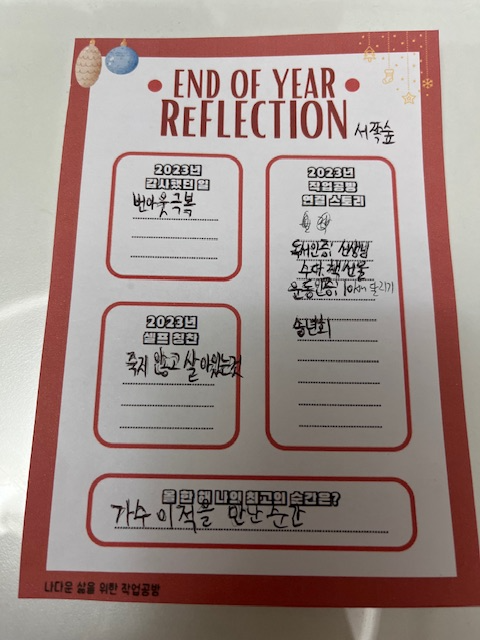 END OF YEAR
REFLECTION
서쪽숲
2023년
감사했던 일
번아웃 극복
2023년
작업공방
연결 스토리
독서인증, 선생님
수다 책 선물
운동인증, 달리기
송년회
2023년
셀프 칭찬
죽지 않고 살아있는것
올 한 해 나의 최고의 순간은?
가수 이적을 만난 순간
나다운 삶을 위한 작업공방